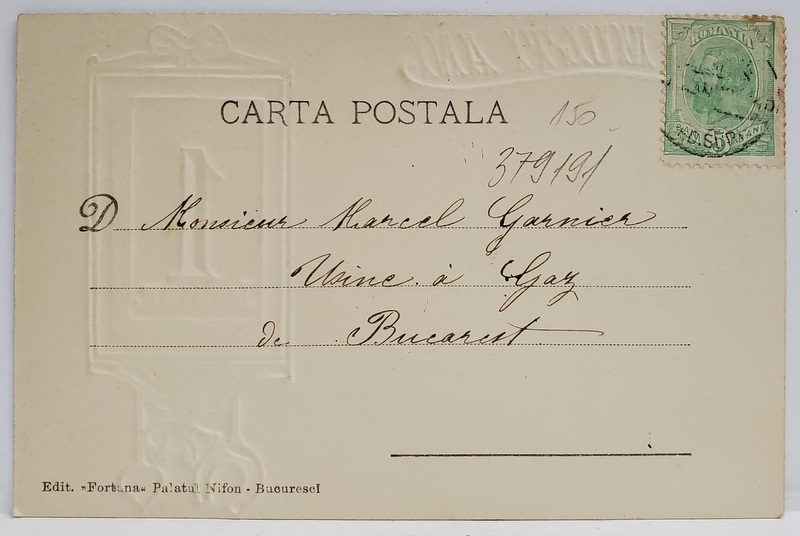 MULTI ANI
CARTA POSTALA
150
379191
ROMANIA
D Monsieur Marcel Garnier
Usine à Gaz
de Bucarest
1
Edit. »Fortuna« Palatul Nifon - BucurescI